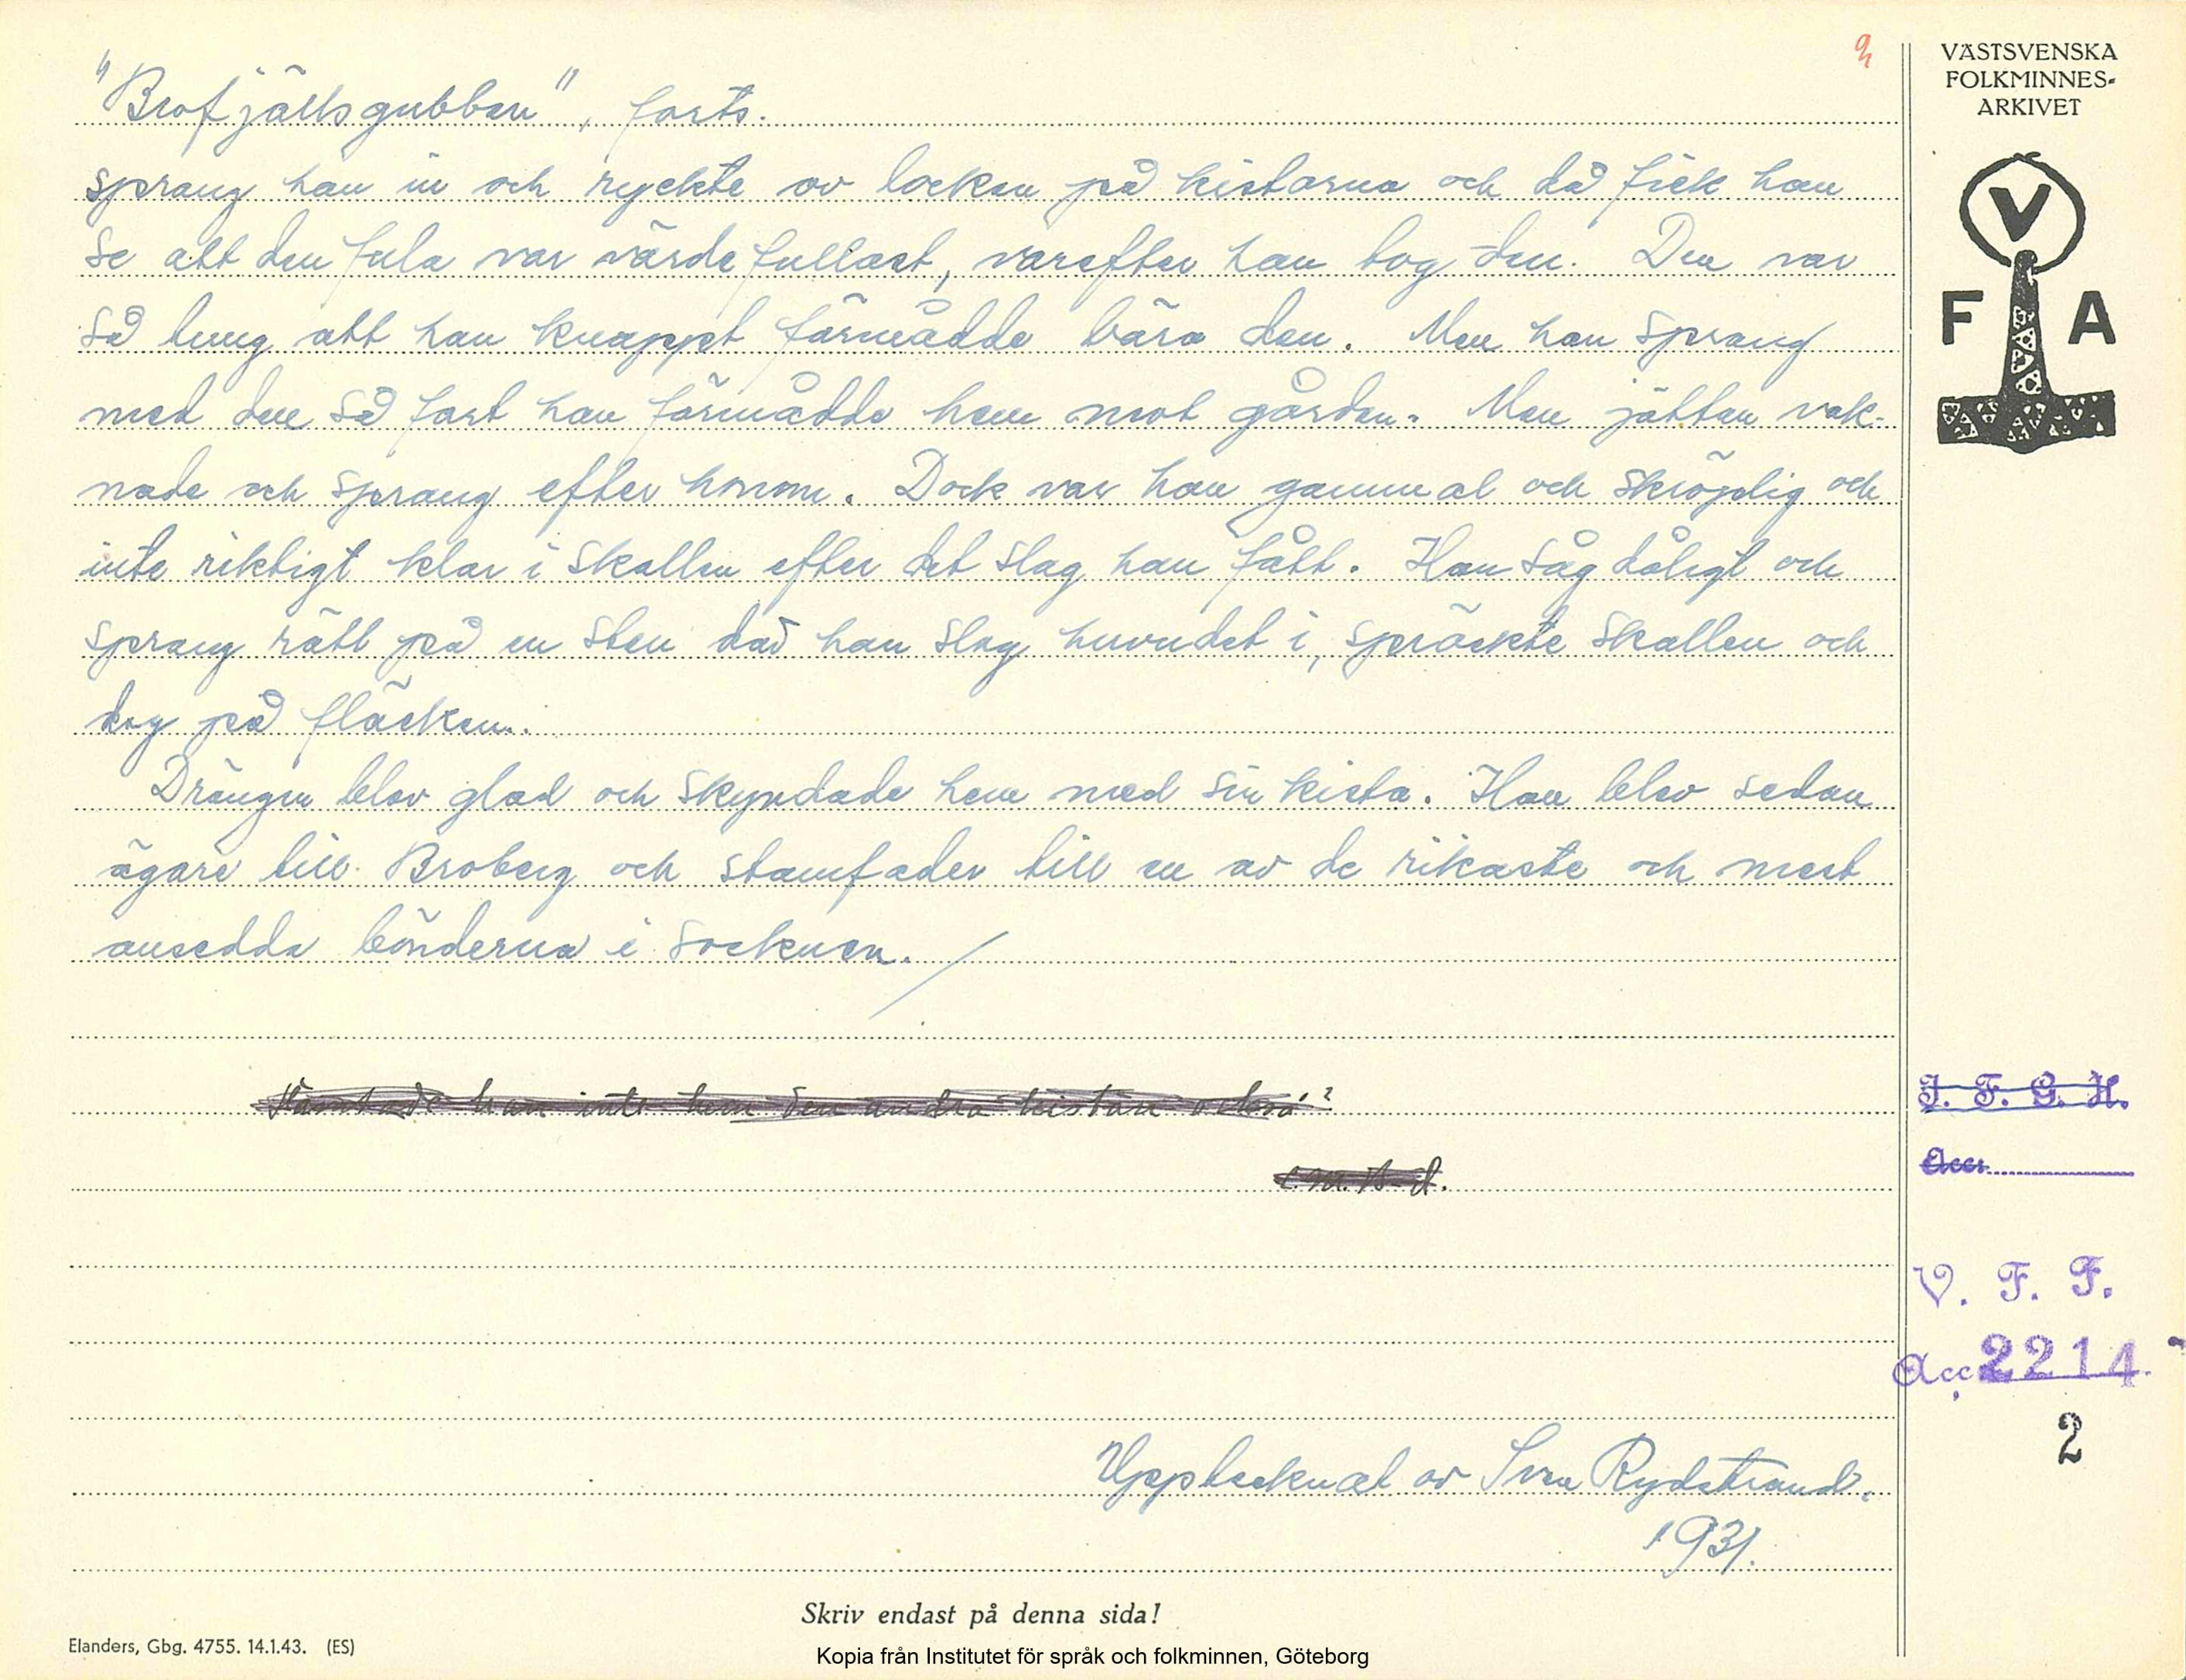 "Brofjällsgubben", forts.
sprang han in och ryckte av locken på kistorna och då fick han
se att den fula var värdefullast, varefter han tog den. Den var
så tung att han knappt förmådde bära den. Men han sprang
med den så fort han förmådde hem mot gården. Men jätten vak-
nade och sprang efter honom. Dock var han gammal och skröplig och
inte riktigt klar i skallen efter det slag han fått. Han såg dåligt och
sprang rätt på en sten där han slog huvudet i, spräckte skallen och
dog på fläcken.
Drängen blev glad och skyndade hem med sin kista. Han blev sedan
ägare till Broberg och stamfader till en av de rikaste och mest
ansedda bönderna i socknen.
Hämtade han inte hem den andra kistan också?
Upptecknat av Sven Rydstrand.
1931.
Skriv endast på denna sida!
Elanders, Gbg. 4755. 14.1.43. (ES)
Kopia från Institutet för språk och folkminnen, Göteborg
VÄSTSVENSKA
FOLKMINNES-
ARKIVET
V
F A
I. F. G. H.
Acc.
V. F. F.
Acc. 2214
2